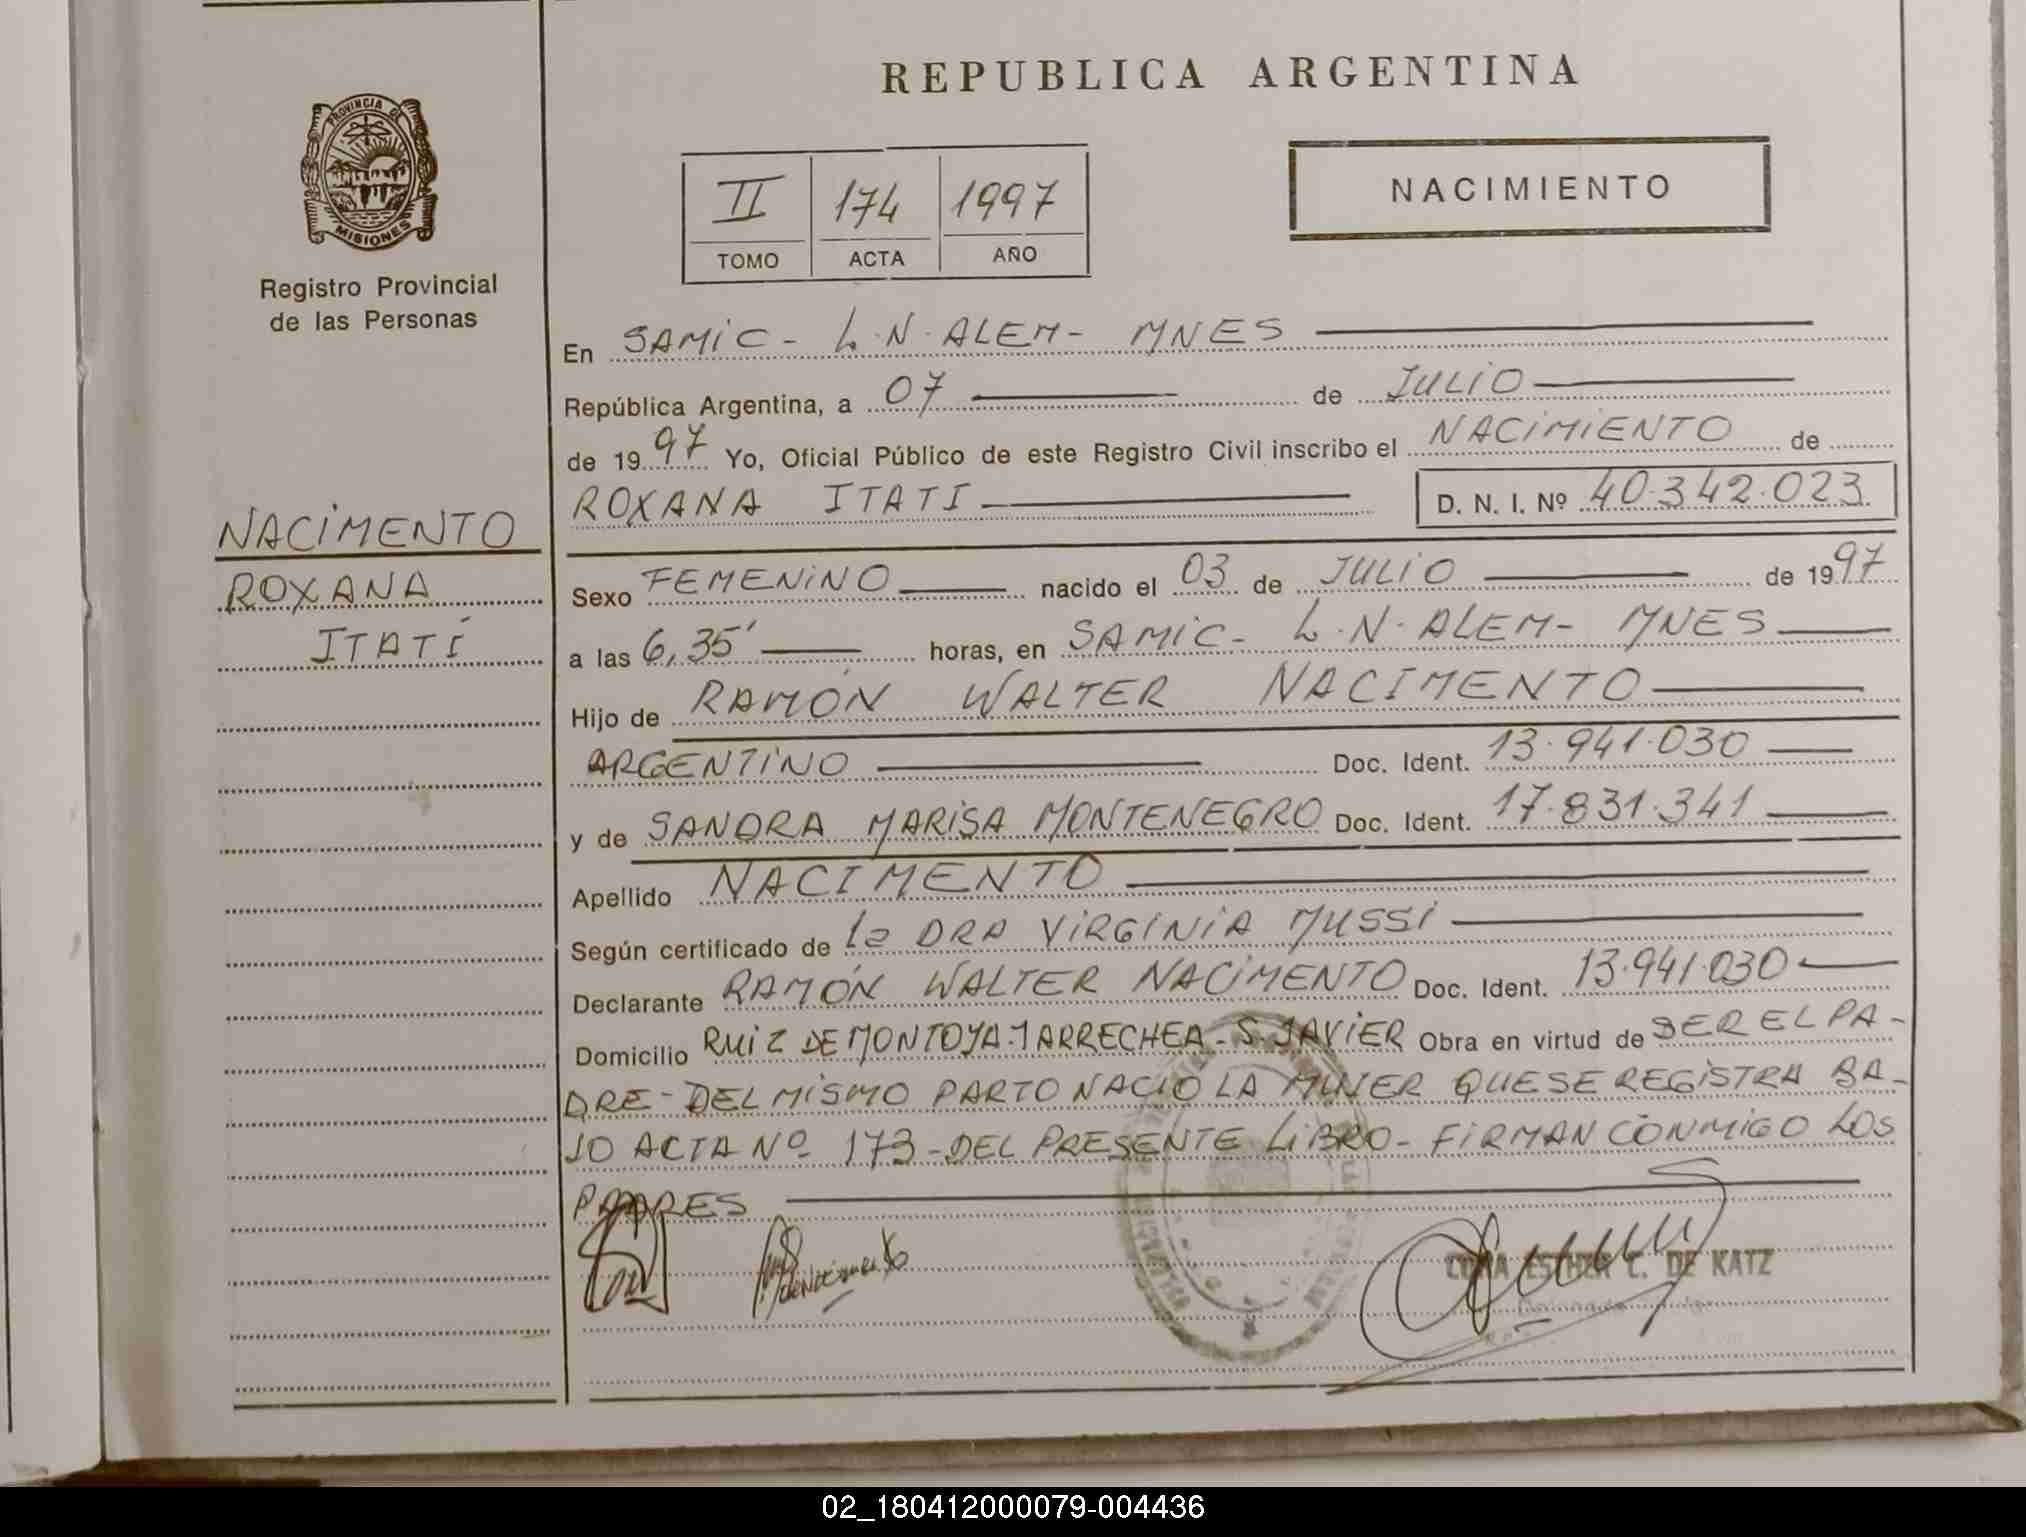 REPUBLICA ARGENTINA
PROVINCIA DE
MISIONES
Registro Provincial
de las Personas
II 174 1997
TOMO ACTA AÑO
NACIMIENTO
NACIMENTO
ROXANA
ITATÍ
En SAMIC - L.N. ALEM - MNES
República Argentina, a 07 de JULIO
de 1997 Yo, Oficial Público de este Registro Civil inscribo el NACIMIENTO de
ROXANA ITATI D. N. I. Nº 40.342.023
Sexo FEMENINO nacido el 03 de JULIO de 1997
a las 6,35' horas, en SAMIC - L.N. ALEM - MNES
Hijo de RAMÓN WALTER NACIMENTO
ARGENTINO Doc. Ident. 13.941.030
y de SANDRA MARISA MONTENEGRO Doc. Ident. 17.831.341
Apellido NACIMENTO
Según certificado de la DRA VIRGINIA MUSSI
Declarante RAMÓN WALTER NACIMENTO Doc. Ident. 13.941.030
Domicilio RUIZ DE MONTOYA - 1 ARRECHEA - S. JAVIER Obra en virtud de SER EL PA-
DRE - DEL MISMO PARTO NACIO LA MUJER QUE SE REGISTRA BA-
JO ACTA Nº 173 - DEL PRESENTE LIBRO - FIRMAN CONMIGO LOS
PADRES
ESTHER C. DE KATZ
02_180412000079-004436